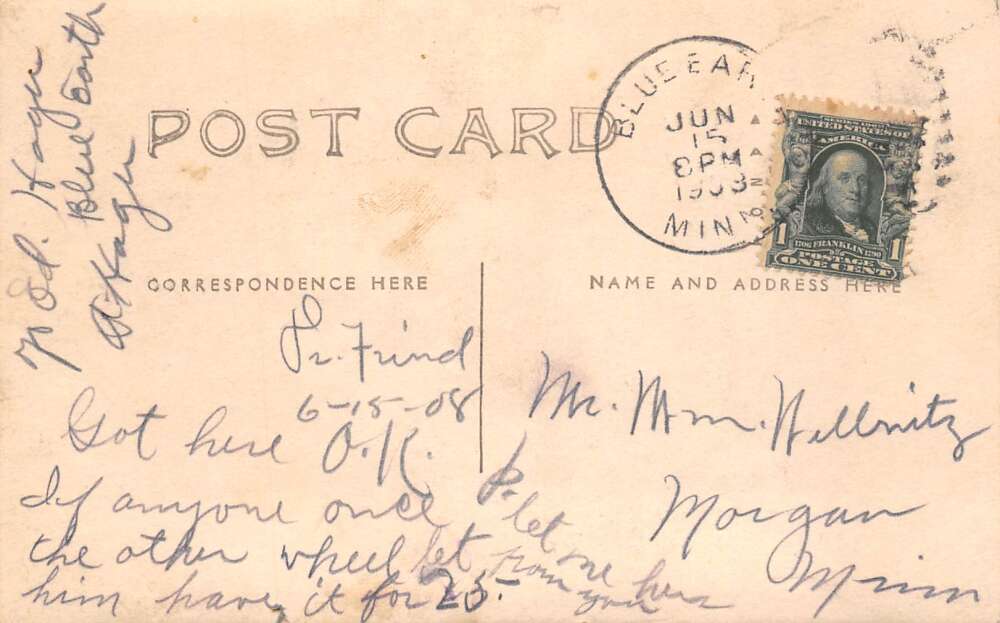 POST CARD
BLUE EAR
JUN
15
8 PM
1908
MINN
SERIES 1902
UNITED STATES OF
AMERICA
1 1
1706 FRANKLIN 1790
POSTAGE
ONE CENT
CORRESPONDENCE HERE
NAME AND ADDRESS HERE
Ed. Hager
Blue Earth
Hager
Fr. Frind
6-15-08
Got here O.K.
If anyone once
the other wheel let
him have it for 25-
let
me here
from you
Mr. Wm. Hellnitz
Morgan
Minn